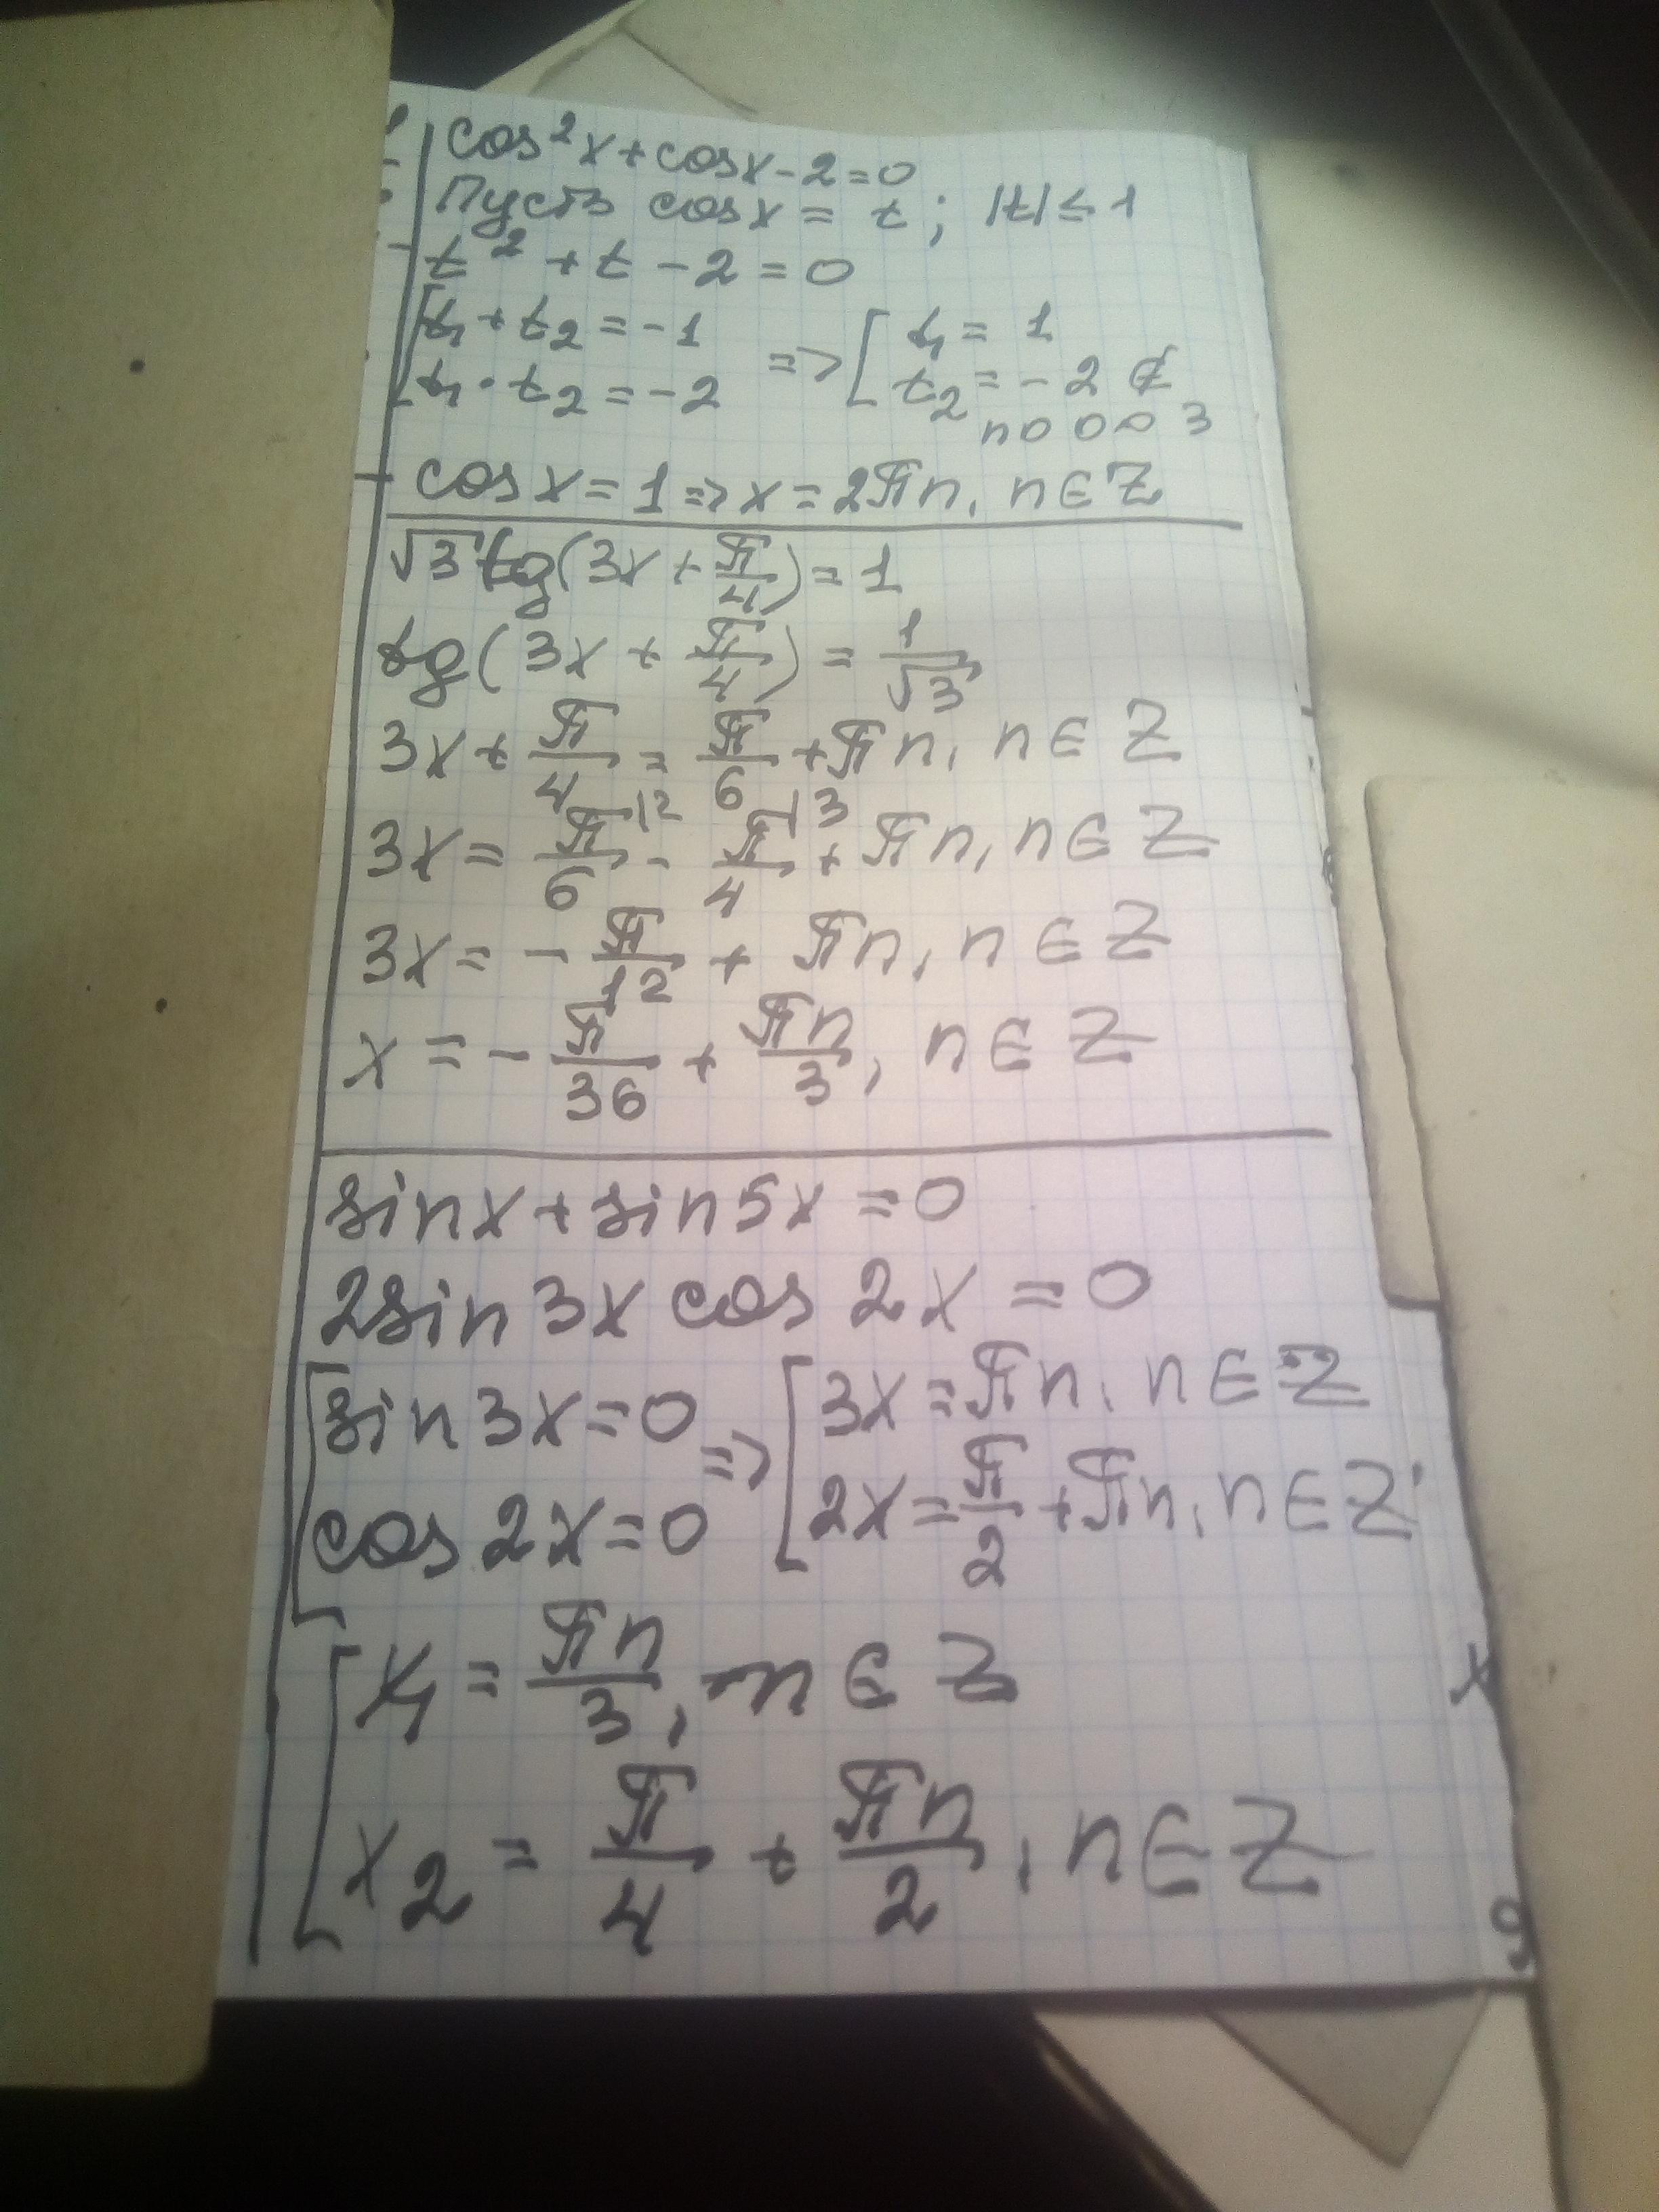 cos²x+cosx-2=0
Пусть cosx = t; |t| ≤ 1
t² + t - 2 = 0
[t₁+t₂ = -1 => [t₁ = 1
t₁·t₂ = -2 t₂ = -2 ∉
по ОО3
cos x = 1 => x = 2πn, n∈Z
√3 tg(3x + π/4) = 1
tg(3x + π/4) = 1/√3
3x + π/4 = π/6 + πn, n∈Z
3x = π/6 - π/4 + πn, n∈Z
3x = - π/12 + πn, n∈Z
x = - π/36 + πn/3, n∈Z
sinx + sin5x = 0
2sin3x cos2x = 0
[sin3x=0 => [3x = πn, n∈Z
cos2x=0 2x = π/2 + πn, n∈Z
[x₁ = πn/3, n∈Z
x₂ = π/4 + πn/2, n∈Z